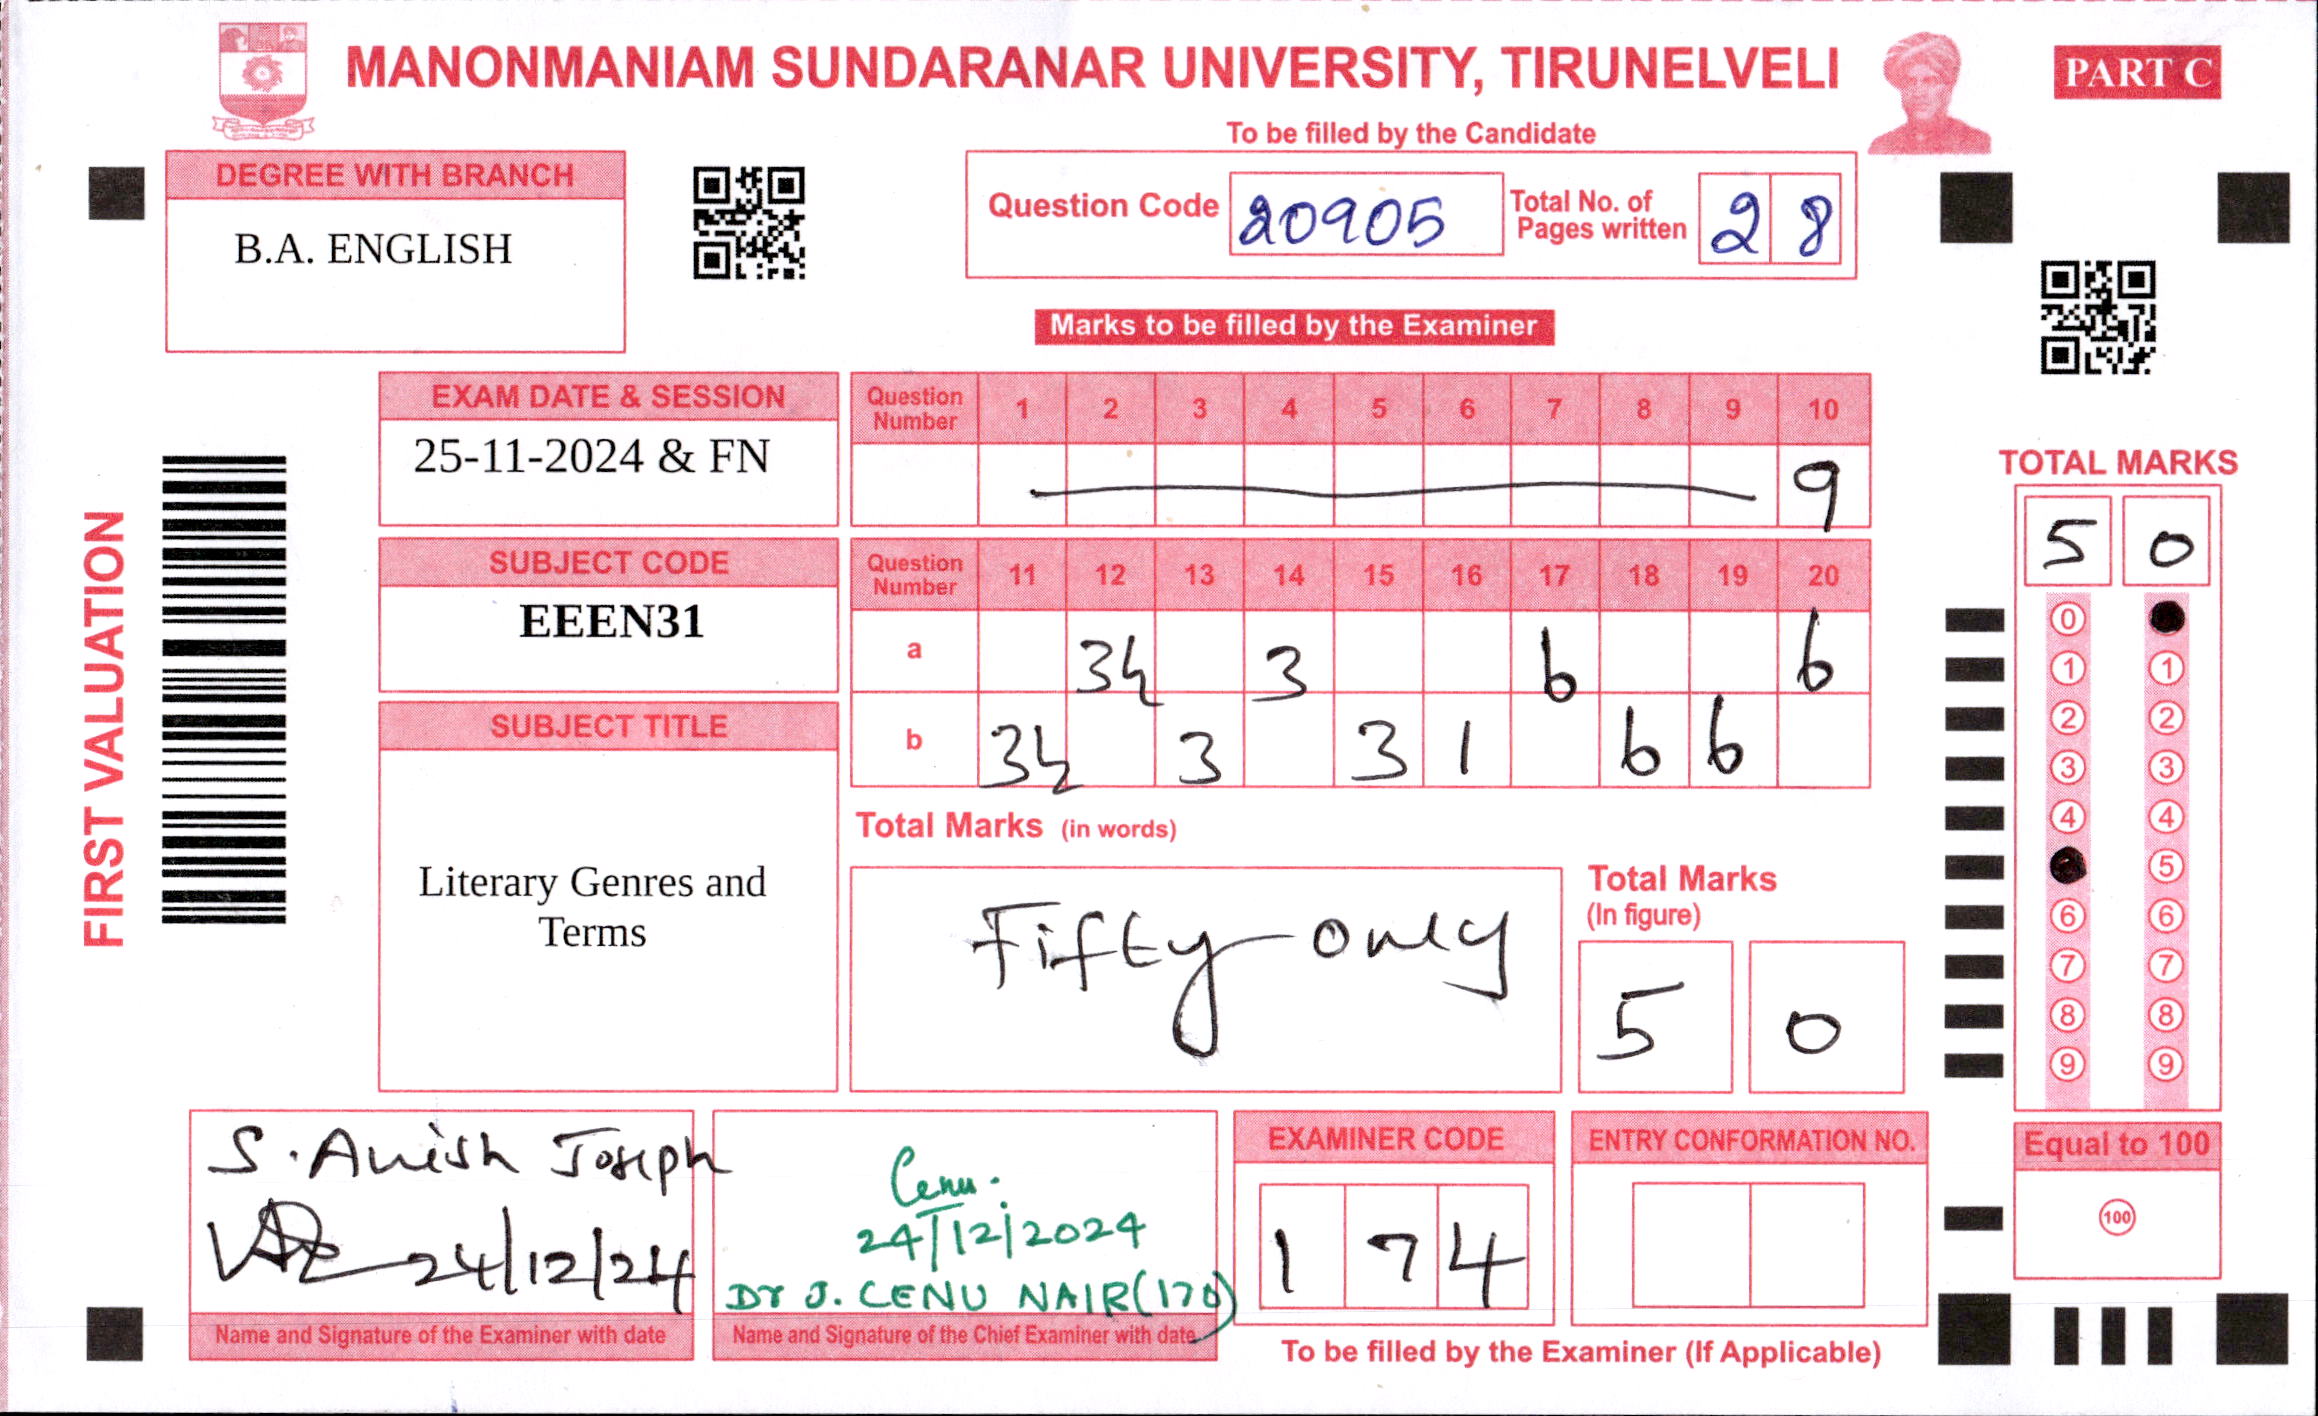 MANONMANIAM SUNDARANAR UNIVERSITY, TIRUNELVELI
PART C
To be filled by the Candidate
DEGREE WITH BRANCH
B.A. ENGLISH
Question Code 20905 Total No. of Pages written 28
Marks to be filled by the Examiner
EXAM DATE & SESSION
25-11-2024 & FN
Question Number 1 2 3 4 5 6 7 8 9 10
9
FIRST VALUATION
SUBJECT CODE
EEEN31
Question Number 11 12 13 14 15 16 17 18 19 20
a 3½ 3 6 6
b 3½ 3 3 1 6 6
SUBJECT TITLE
Literary Genres and
Terms
Total Marks (in words)
Fifty only
Total Marks
(In figure)
5 0
TOTAL MARKS
5 0
0
1 1
2 2
3 3
4 4
5
6 6
7 7
8 8
9 9
Equal to 100
100
S. Anish Joseph
24/12/24
Name and Signature of the Examiner with date
Cenu.
24/12/2024
Dr J. CENU NAIR (170)
Name and Signature of the Chief Examiner with date
EXAMINER CODE
1 7 4
ENTRY CONFORMATION NO.
To be filled by the Examiner (If Applicable)